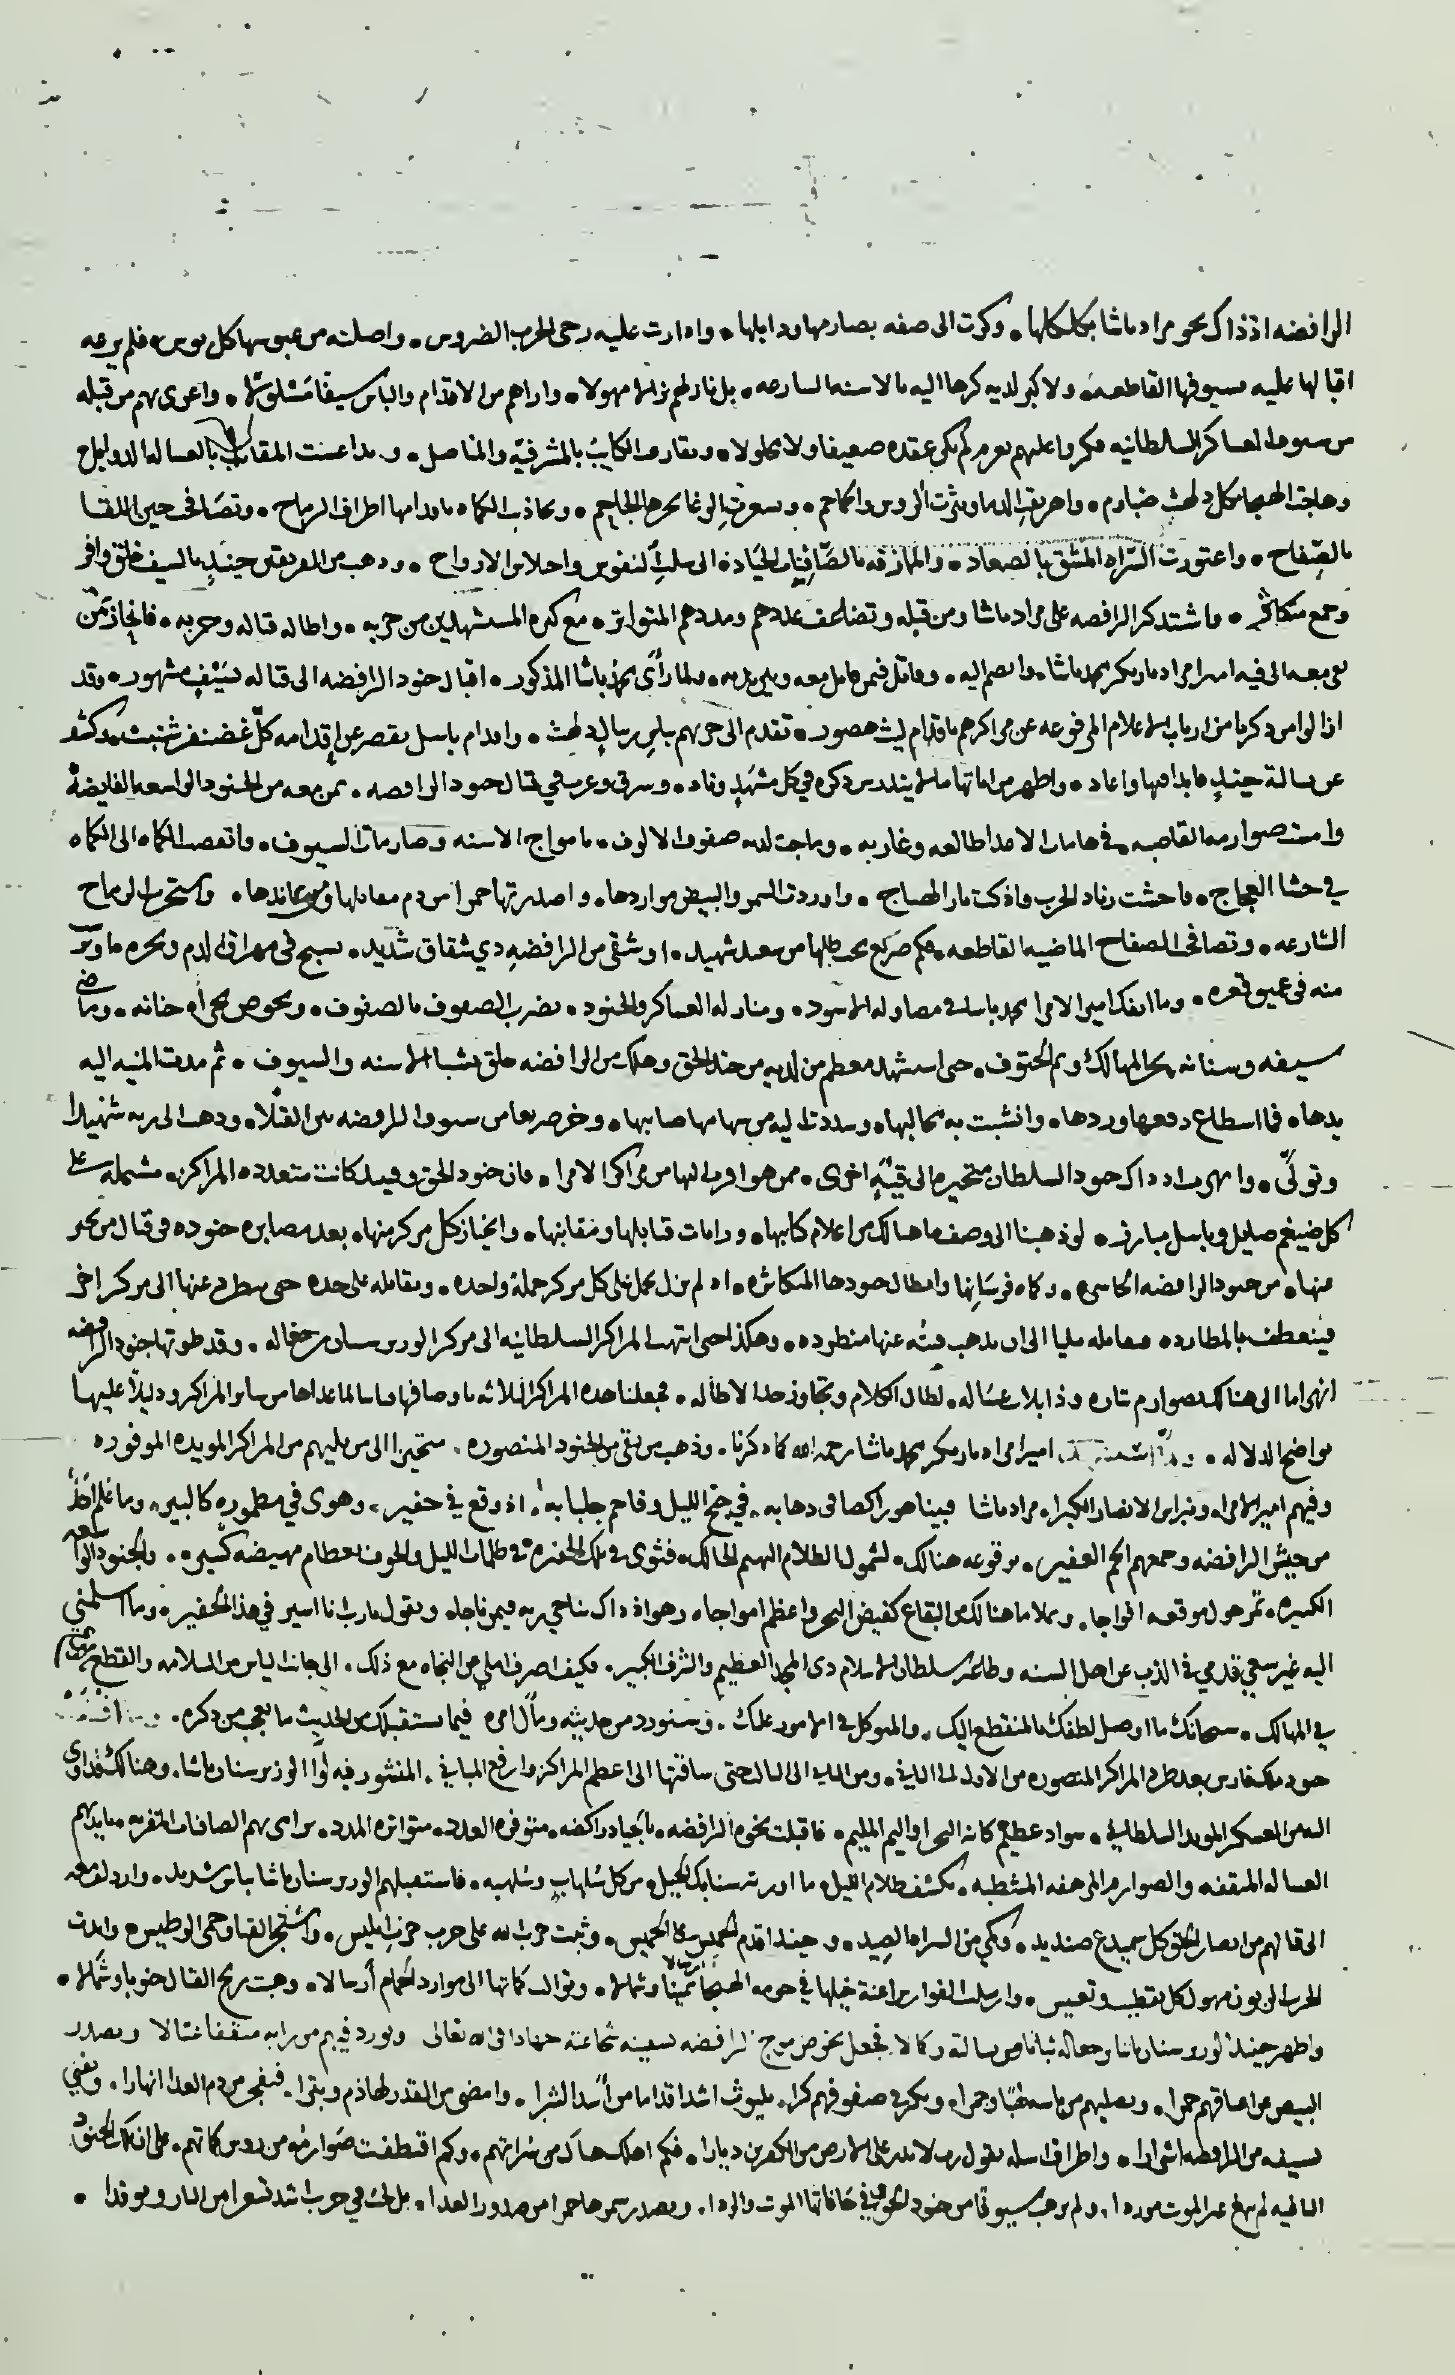 الرافضه اذذاك نحو مراد باشا بكلكلها • وكرت الى صفه بصارمها وذابلها • وادارت عليه رحى الحرب الضروس • واصلته من عبوسها كل بوس • فلم يرعه
اقبالها عليه بسيوفها القاطعه • ولا كبر لديه كرها اليه بالاسنه الشارعه • بل نازلهم نزالا مهولا • واراهم من الاقدام والباس سيفا مسلولا • واغرى بهم من قبله
من سيوف العساكر السلطانيه فكروا عليهم بعزم لم يكن عقده ضعيفا ولا محلولا • وتقارعت الكتايب بالمشرفيه والمناصل • وتداعست المقانب بالعساله الذوابل
وهاجت الهيجا بكل دلهث ضبارم • واهريقت الدما ونثرت الروس والجماجم • وسعرت الوغا بحرها الجاحم • وتجاذبت الكماه باقدامها اطراف الرماح • وتصافحت حين اللقا
بالصفاح • واعتورت السراه المشق بالصعاد • والمازقه بالصافنات الجياد • الى سلب النفوس واختلاس الارواح • وذهب من الفريقين حينئذ بالسيف خلق وافر
وجمع متكاثر • فاشتد كر الرافضه على مراد باشا ومن قبله وتضاعف عددهم ومددهم المتواتر • مع كثره المستشهدين من حزبه • واطاله قتاله وحربه • فانحاز بمن
بقى معه الى فيه امير امرا ديار بكر محمد باشا • وانضم اليه • وقاتل فيمن قاتل معه وبين يديه • ولما رأى محمد باشا المذكور • اقبال جنود الرافضه الى قتاله بسيف مشهور • وقد
ازالوا من ذكرنا من ارباب الاعلام المرفوعه عن مراكزهم باقدام ليث هصور • تقدم الى حربهم بليث ربيال دلهث • واقدام باسل يقصر عن اقدامه كل غضنفر شنبث • وكشف
عن بسالة حينئذ فابدا فيها واعاد • واظهر من اياتها ما لا يندرس ذكره في كل مشهد وناد • وشرق وغرب في قتال جنود الرافضه • بمن معه من الجنود الواسعه الفايضه
وامست صوارمه القاضبه • في هامات الاعدا طالعه وغاربه • وماجت لديه صفوف الالوف • بامواج الاسنه وصارمات السيوف • وانغمست الكماه الى الكماه
في حشا العجاج • فاحتثت زناد الحرب واذكت نار الهياج • واوردت السمر والبيض مواردها • واصدرتها حمرا من دم مقاتلها ومعاندها • واشتجرت الرماح
الشارعه • وتصافحت الصفاح الماضيه القاطعه • فكم صريع تحت ظلها من سعيد شهيد • او شقى من الرافضه ذي شقاق شديد • يسبح فى مهراق الدم وبحره
منه فى عميق قعره • وما انفك امير الامرا محمد باشا فى مصاوله الاسود • ومنازله العساكر والجنود • يضرب الصفوف بالصفوف • ويخوض بجراه جنانه • وماضى
سيفه وسنانه بحر المهالك ويم الحتوف • حتى استشهد معظم من لديه من جند الحق وهلك من الرافضه خلق بشبا الاسنه والسيوف • ثم مدت المنيه اليه
يدها • فما اسطاع دفعها وردها • وانشبت به مخالبها • وسددت اليه من سهامها صايبها • وخر صريعا من سيوف الرافضه بين القتلا • وذهب الى ربه شهيدا
وتولى • وانهزمت اذ ذاك جنود السلطان متحيزه الى فيئة اخرى • ممن هو اقرب اليها من مراكز الامرا • فان جنود الحق وقتئذ كانت متعدده المراكز • مشتمله على
كل ضيغم صايل وباسل مبارز • لو ذهبنا الى وصف ما هنالك من اعلام كتايبها • ورايات قنابلها ومقانبها • وانحياز كل مركز منها • بعد مصابره جنوده فى قتال من نحو
منها • من جنود الرافضه الخاسره • وكماه فرسانها وابطال جنودها المتكاثره • اذ لم يزل يحمل على كل مركز حملة واحده • ويقاتله على حده حتى ينطرد عنها الى مركز اخر
فينعطف بالمطارده • فيقاتله مليا الى ان يذهب فيئه عنها مطروده • وهكذا حتى انتهت المراكز السلطانيه الى مركز الوزير سنان من جغاله • وقد طوتها جنود الرافضه
انهزاما الى هناك بصوارم بتاره وذابلات عساله • لطال الكلام وتجاوز حد الاطاله • فجعلنا هذه المراكز الثلاثه باوصافها مثالا لما عداها من ساير المراكز ودليلا عليها
بواضح الدلاله • ولما استشهد امير امرا ديار بكر محمد باشا رحمه الله كما ذكرنا • وذهب من بقى من الجنود المنصوره • متحيزا الى من يليهم من المراكز المويده الموفوره
وفيهم امير الامرا ونبراس الانصار الكبرا • مراد باشا فبينا هو راكضا فى ذهابه • في جنح الليل وفاحم جلبابه • اذ وقع في حفير • وهوى في مطموره كالبير • وما علم احد
من جيش الرافضه وجمعهم الجم الغفير • بوقوعه هنالك • لشمول الظلام البهيم الحالك • فثوى فى تلك الحفره فى ظلمات الليل والخوف بعظام مهيضه كسيره • والجنود الواسعه
الكبيره • تمر حول موقعه افواجا • وتملا ما هنالك من البقاع كفيض البحر واعظم امواجا • وهو اذ ذاك يناجي ربه فيمن ناجاه ويقول يا رب انا اسير في هذا الحفير • وما اسلمني
اليه غير سعي قدمي فى الذب عن اهل السنه وطاعه سلطان الاسلام ذى المجد العظيم والشرف الكبير • فكيف اصرف املي عن النجاه مع ذلك • الى جانب الياس من السلامه والقطع
في المهالك • سبحانك ما اوصل لطفك بالمنقطع اليك • والمتوكل فى الامور عليك • وسنورد من حديثه ومآل امره فيما يستقبلك من الحديث ما يعجب من ذكره •
جنود ملك فارس بعد طرد المراكز المنصوره من الاول الى الثانى • ومن الثانى الى الثالث حتى ساقتها الى اعظم المراكز وارفع المباني • المنشور فيه لوا الوزير سنان باشا • وهنالك
اليه من العسكر المويد السلطاني • سواد عظيم كانه البحر او اليم المليم • فاقبلت نحوه الرافضه • بالجياد راكضه • متوفره العدد • متواتره المدد • ترامى بهم الصافنات المقربه • بايديهم
العساله المثقفه والصوارم المرهفه المشطبه • تكشف ظلام الليل • ما اورته سنابك الخيل • من كل سلهاب وسلهبه • فاستقبلهم الوزير سنان باشا بباس شديد • وازدلف معه
الى قتالهم من انصار الحق كل سميدع صنديد • وكمي من السراه الصيد • وحينئذ اقدم الخميس على الخميس • وثبت حزب الله على حرب حزب ابليس • واشتجر القنا وحمى الوطيس • وابدت
الحرب الزبون مهول كل تقطيب وتعبيس • وارسلت الفوارس اعنة خيلها في حومه الهيجا يمينا وشمالا • وتوالت كماتها الى موارد الحمام ارسالا • وهبت ريح القتال جنوبا وشمالا •
واظهر حينئذ الوزير سنان باشا وجعاله ثباتا وبسالة وكمالا فجعل يخوض موج الرافضه بسفينه شجاعته جهادا فى الله تعالى ويورد فيهم من رايه مثقفا عسالا ويصدر
البيض من اعناقهم حمرا • ويصليهم من باسه لهبا وجمرا • ويكر فى صفوفهم كرا • بليوث اشد اقداما من اسد الشرا • وامضى من القدر لهاذم وبترا • فتفجر من دم العدا انهارا • ويفني
بسيفه من الرافضه اشرارا • واطراف اسله تقول رب لا تذر على الارض من الكافرين ديارا • فكم اهلك هناك من سراتهم • وكم اقتطفت صوارمه من روس كماتهم • على ان تلك الجنود
الباغيه لم تبغ غير الموت موردا • ولم ترهب سيوفا من جنود الحق في حافاتها الموت والردا • ويصدر سمرها حمرا من صدور العدا • بل لحت في حرب اشد تسعرا من النار وموقدا •